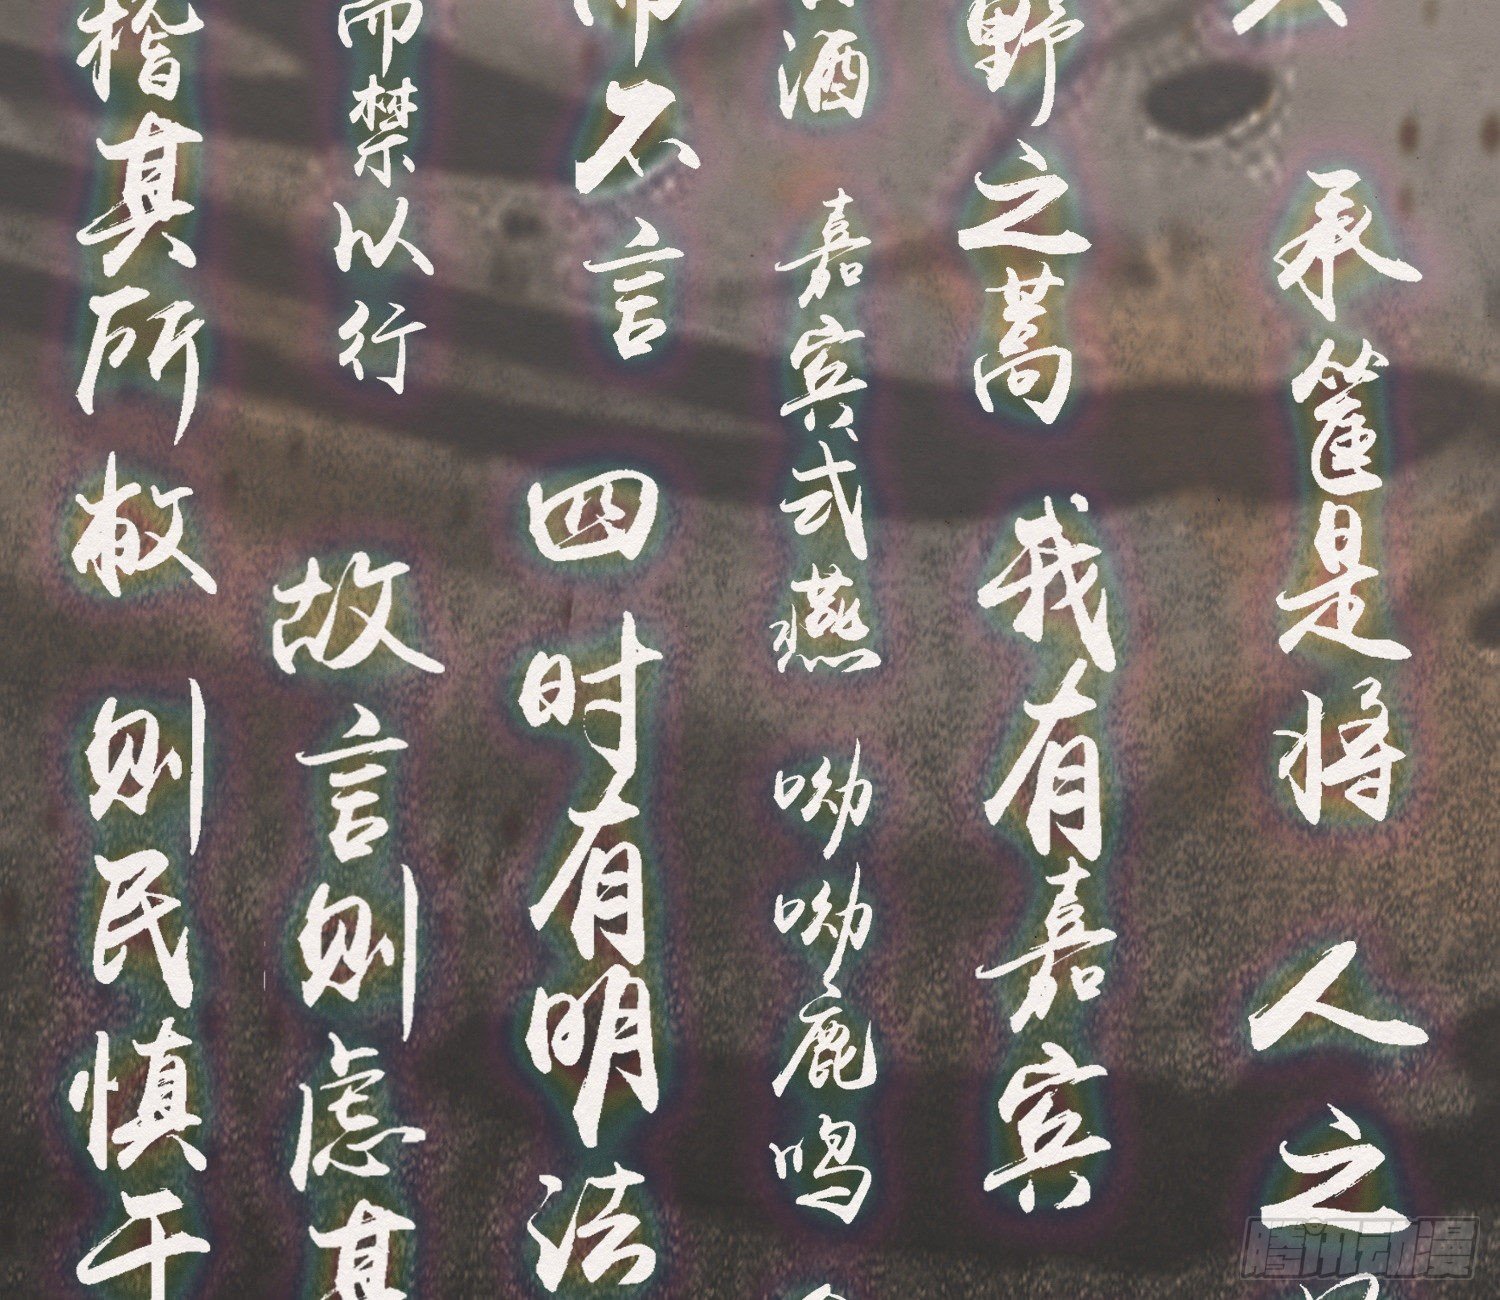 承筐是将 人之
野之蒿 我有嘉宾
酒 嘉宾式燕 呦呦鹿鸣
而不言 四时有明法
而禁以行 故言则虑其
稽其所敝 则民慎于
腾讯动漫